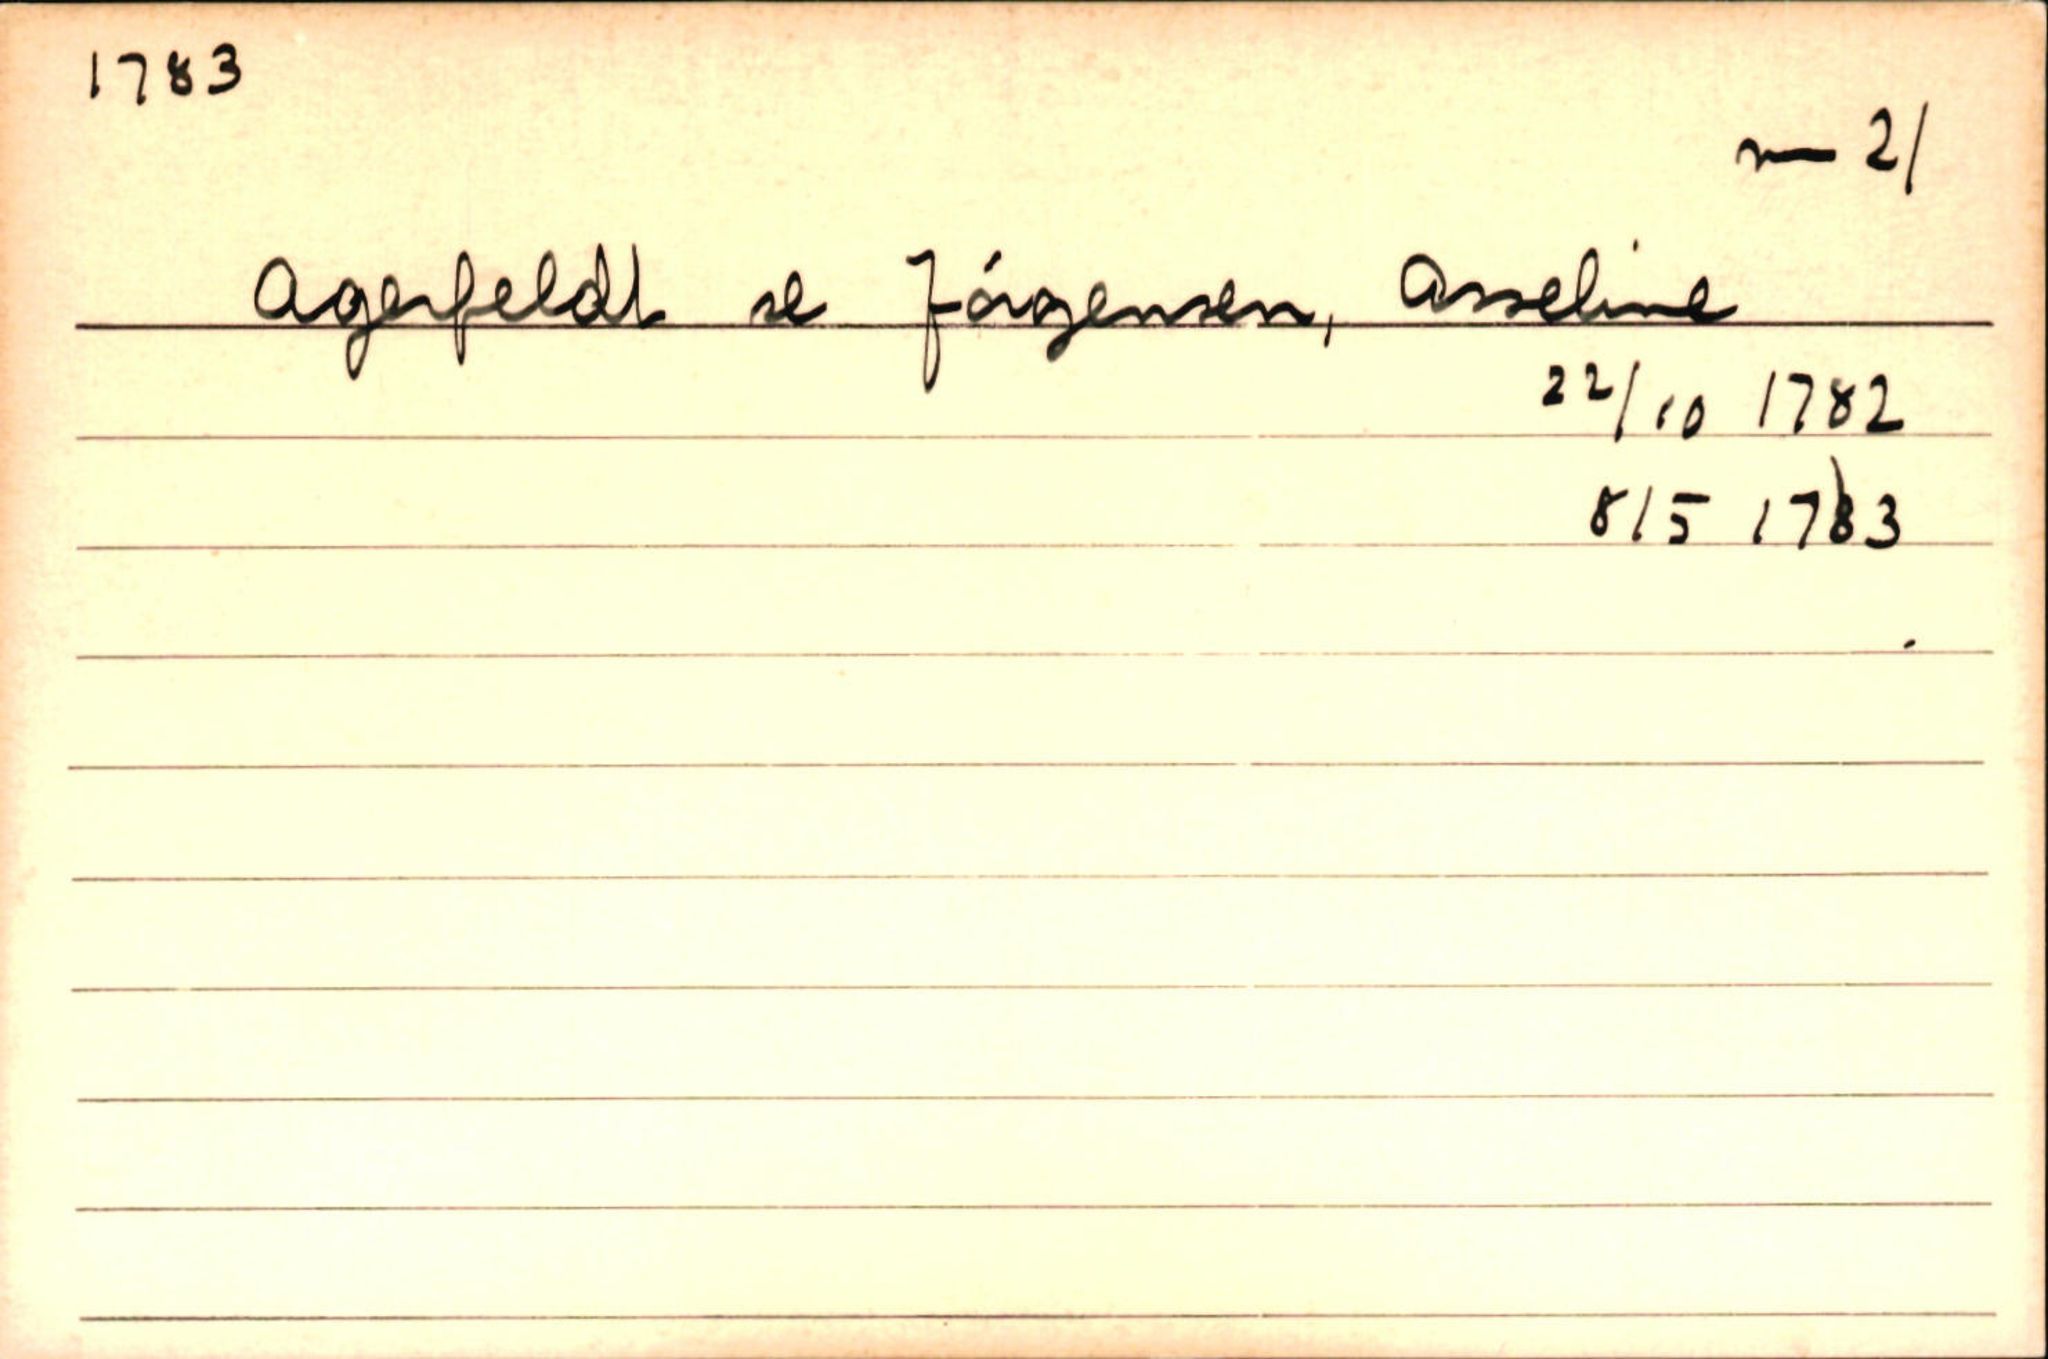 1783
m 21
Agerfeldt se Jórgensen, Asseline
22/10 1782
8/5 1783